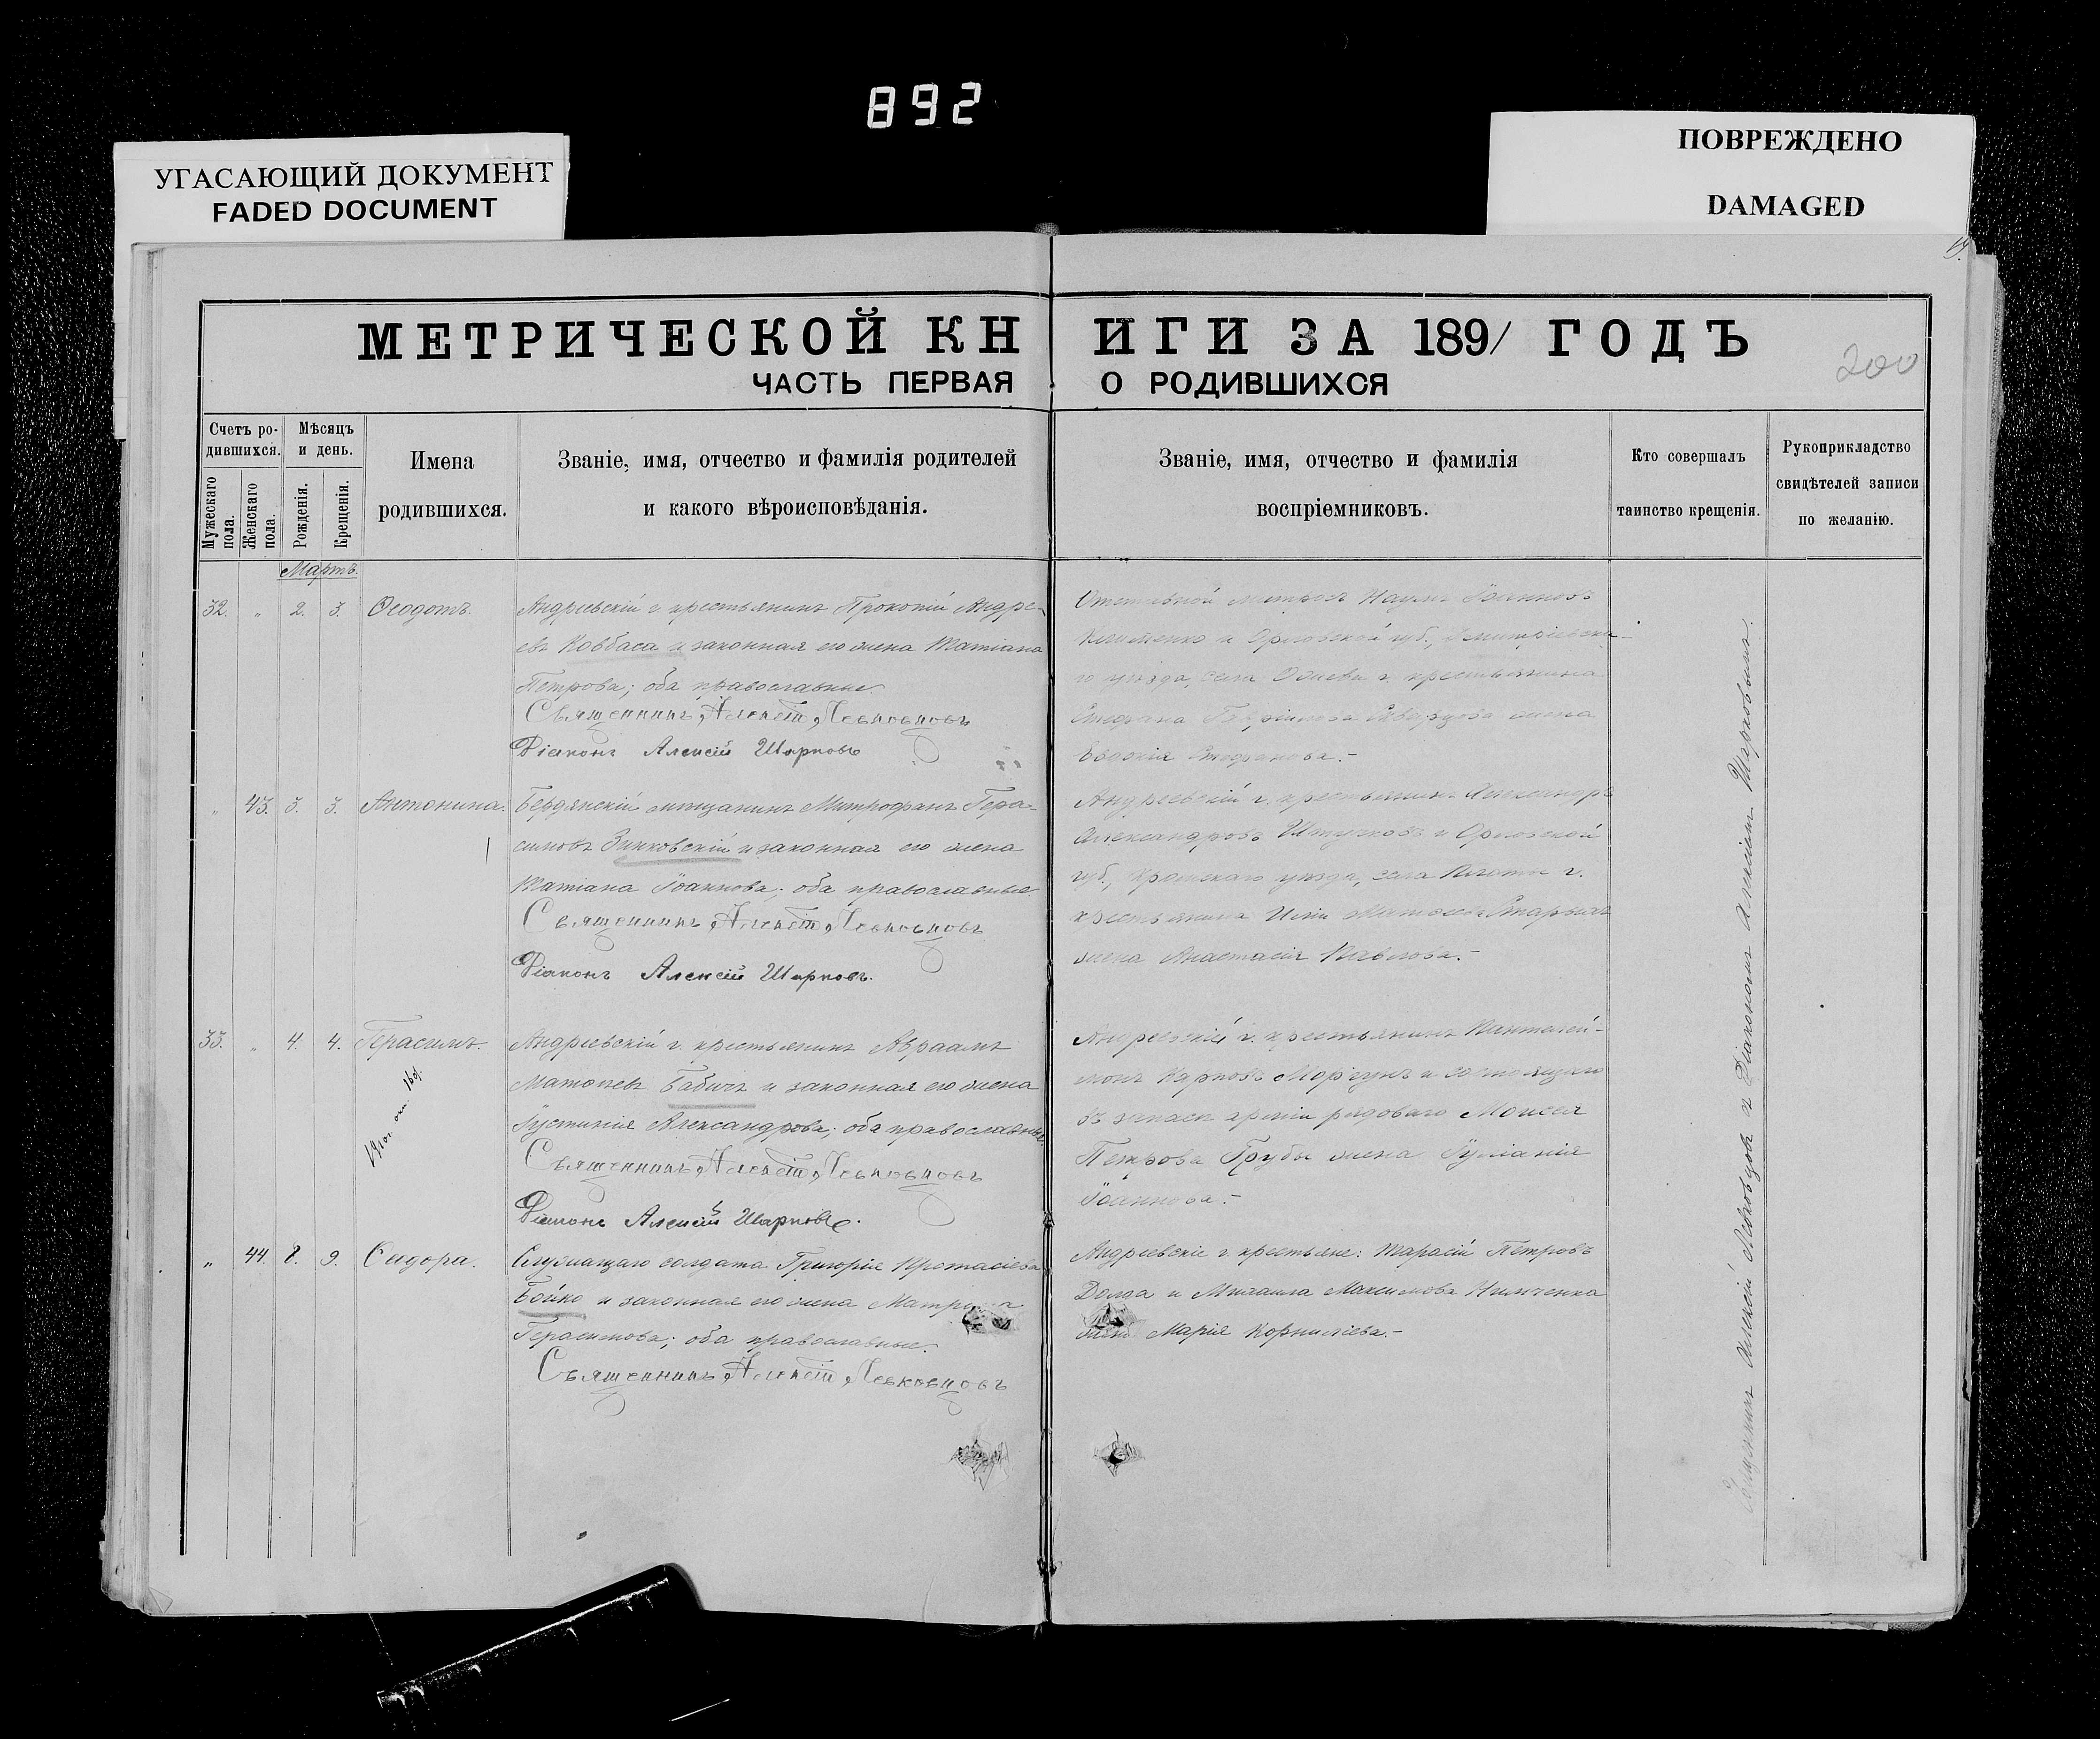 892
УГАСАЮЩИЙ ДОКУМЕНТ
FADED DOCUMENT
ПОВРЕЖДЕНО
DAMAGED
МЕТРИЧЕСКОЙ КНИГИ ЗА 1891 ГОДЪ
200
ЧАСТЬ ПЕРВАЯ О РОДИВШИХСЯ
Счетъ ро-
дившихся.
Мужескаго пола.
Женскаго пола.
Мѣсяцъ
и день.
Рожденія.
Крещенія.
Имена
родившихся.
Званіе, имя, отчество и фамилія родителей
и какого вѣроисповѣданія.
Званіе, имя, отчество и фамилія
воспріемниковъ.
Кто совершалъ
таинство крещенія.
Рукоприкладство
свидѣтелей записи
по желанію.
Мартъ.
32. " 2. 3. Ѳеодотъ.
Андреевскій г. крестьянинъ Прокопій Андре-
евъ Ковбаса и законная его жена Татіана
Петрова; оба православные.
Священникъ Алексій Левковцовъ
Діаконъ Алексій Шарковъ
Отставной матросъ Наумъ Іоанновъ
Клименко и Орловской губ., Дмитріевска-
го уѣзда, села г. крестьянина
Стефана жена
Евдокія Стефанова.-
" 43. 3. 3. Антонина.
Бердянскій мѣщанинъ Митрофанъ Гера-
симовъ Зинковскій и законная его жена
Татіана Іоаннова; оба православные.
Священникъ Алексій Левковцовъ
Діаконъ Алексій Шарковъ.
Андреевскій г. крестьянинъ Александръ
Александровъ и Орловской
губ., Кромскаго уѣзда, села г.
крестьянина
жена Анастасія Павлова.-
33. " 4. 4. Герасимъ.
Андреевскій г. крестьянинъ Авраамъ
Матѳеевъ Бабичъ и законная его жена
Іустинія Александрова; оба православные.
Священникъ Алексій Левковцовъ
Діаконъ Алексій Шарковъ.
Андреевскій г. крестьянинъ Пантелей-
монъ Карповъ Моргунъ и состоящаго
въ запасѣ арміи рядоваго Моисея
Петрова Грубы жена Іуліанія
Іоаннова.-
" 44. 8. 9. Сидора.
Служащаго солдата Григорія Протасіева
Бойко и законная его жена
Герасимова; оба православные.
Священникъ Алексій Левковцовъ
Андреевскіе г. крестьяне: Тарасій Петровъ
Долда и Михаила Максимова Нимченка
жена Марія Корниліева.-
Священникъ Алексій Левковцовъ и Діакономъ Алексіемъ Шарковымъ.